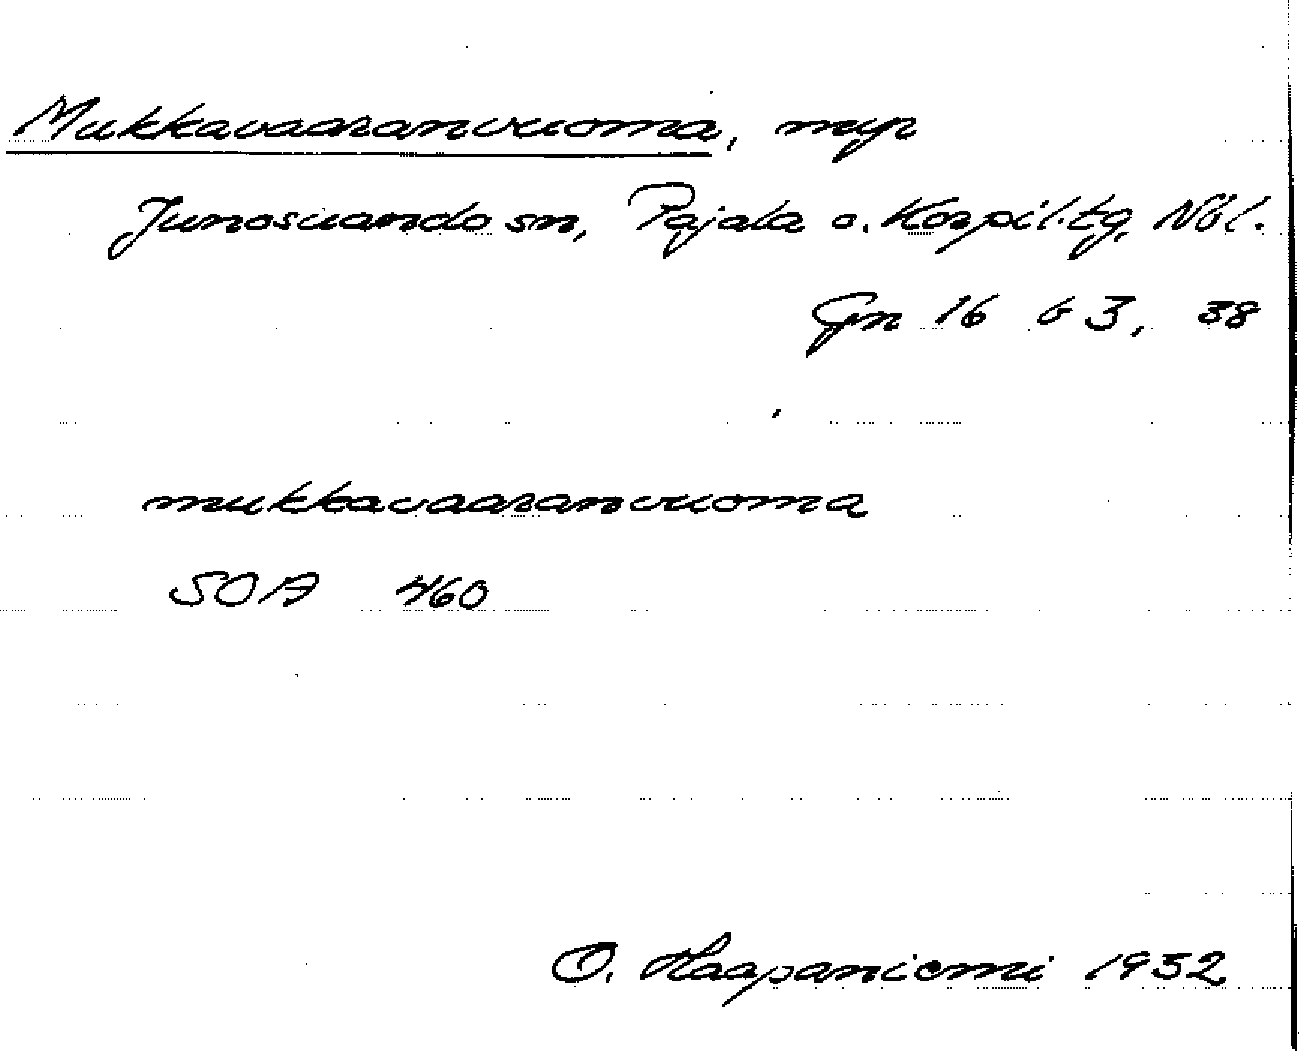 Mukkavaaranvuoma, myr
Junosuando sn, Pajala o. Korpil. tg, Nbl.
Gn 16 b 3, 38
mukkavaaranvuoma
SOA 460
O. Haapaniemi 1932